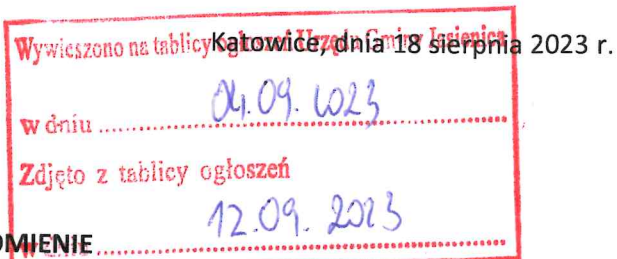 Katowice, dnia 18 sierpnia 2023 r.
Wywieszono na tablicy ogłoszeń Urzędu Gminy Jasienica
w dniu 04.09.2023
Zdjęto z tablicy ogłoszeń
w dniu 12.09.2023
OMIENIE